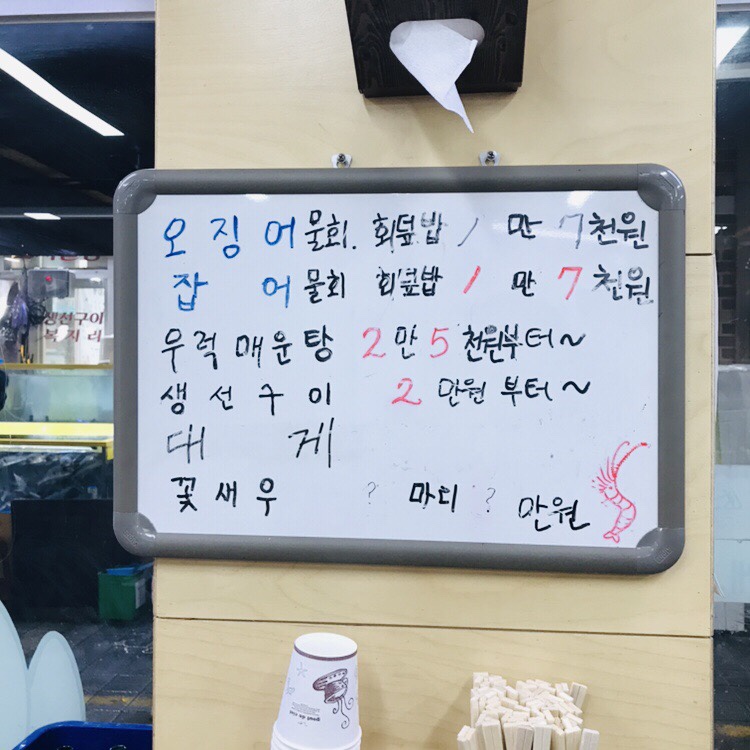 오징어물회. 회덮밥 1만 7천원
잡어물회 회덮밥 1만 7천원
우럭매운탕 2만5천원부터~
생선구이 2만원부터~
대게
꽃새우 ? 마디 ? 만원
생선구이
복지리